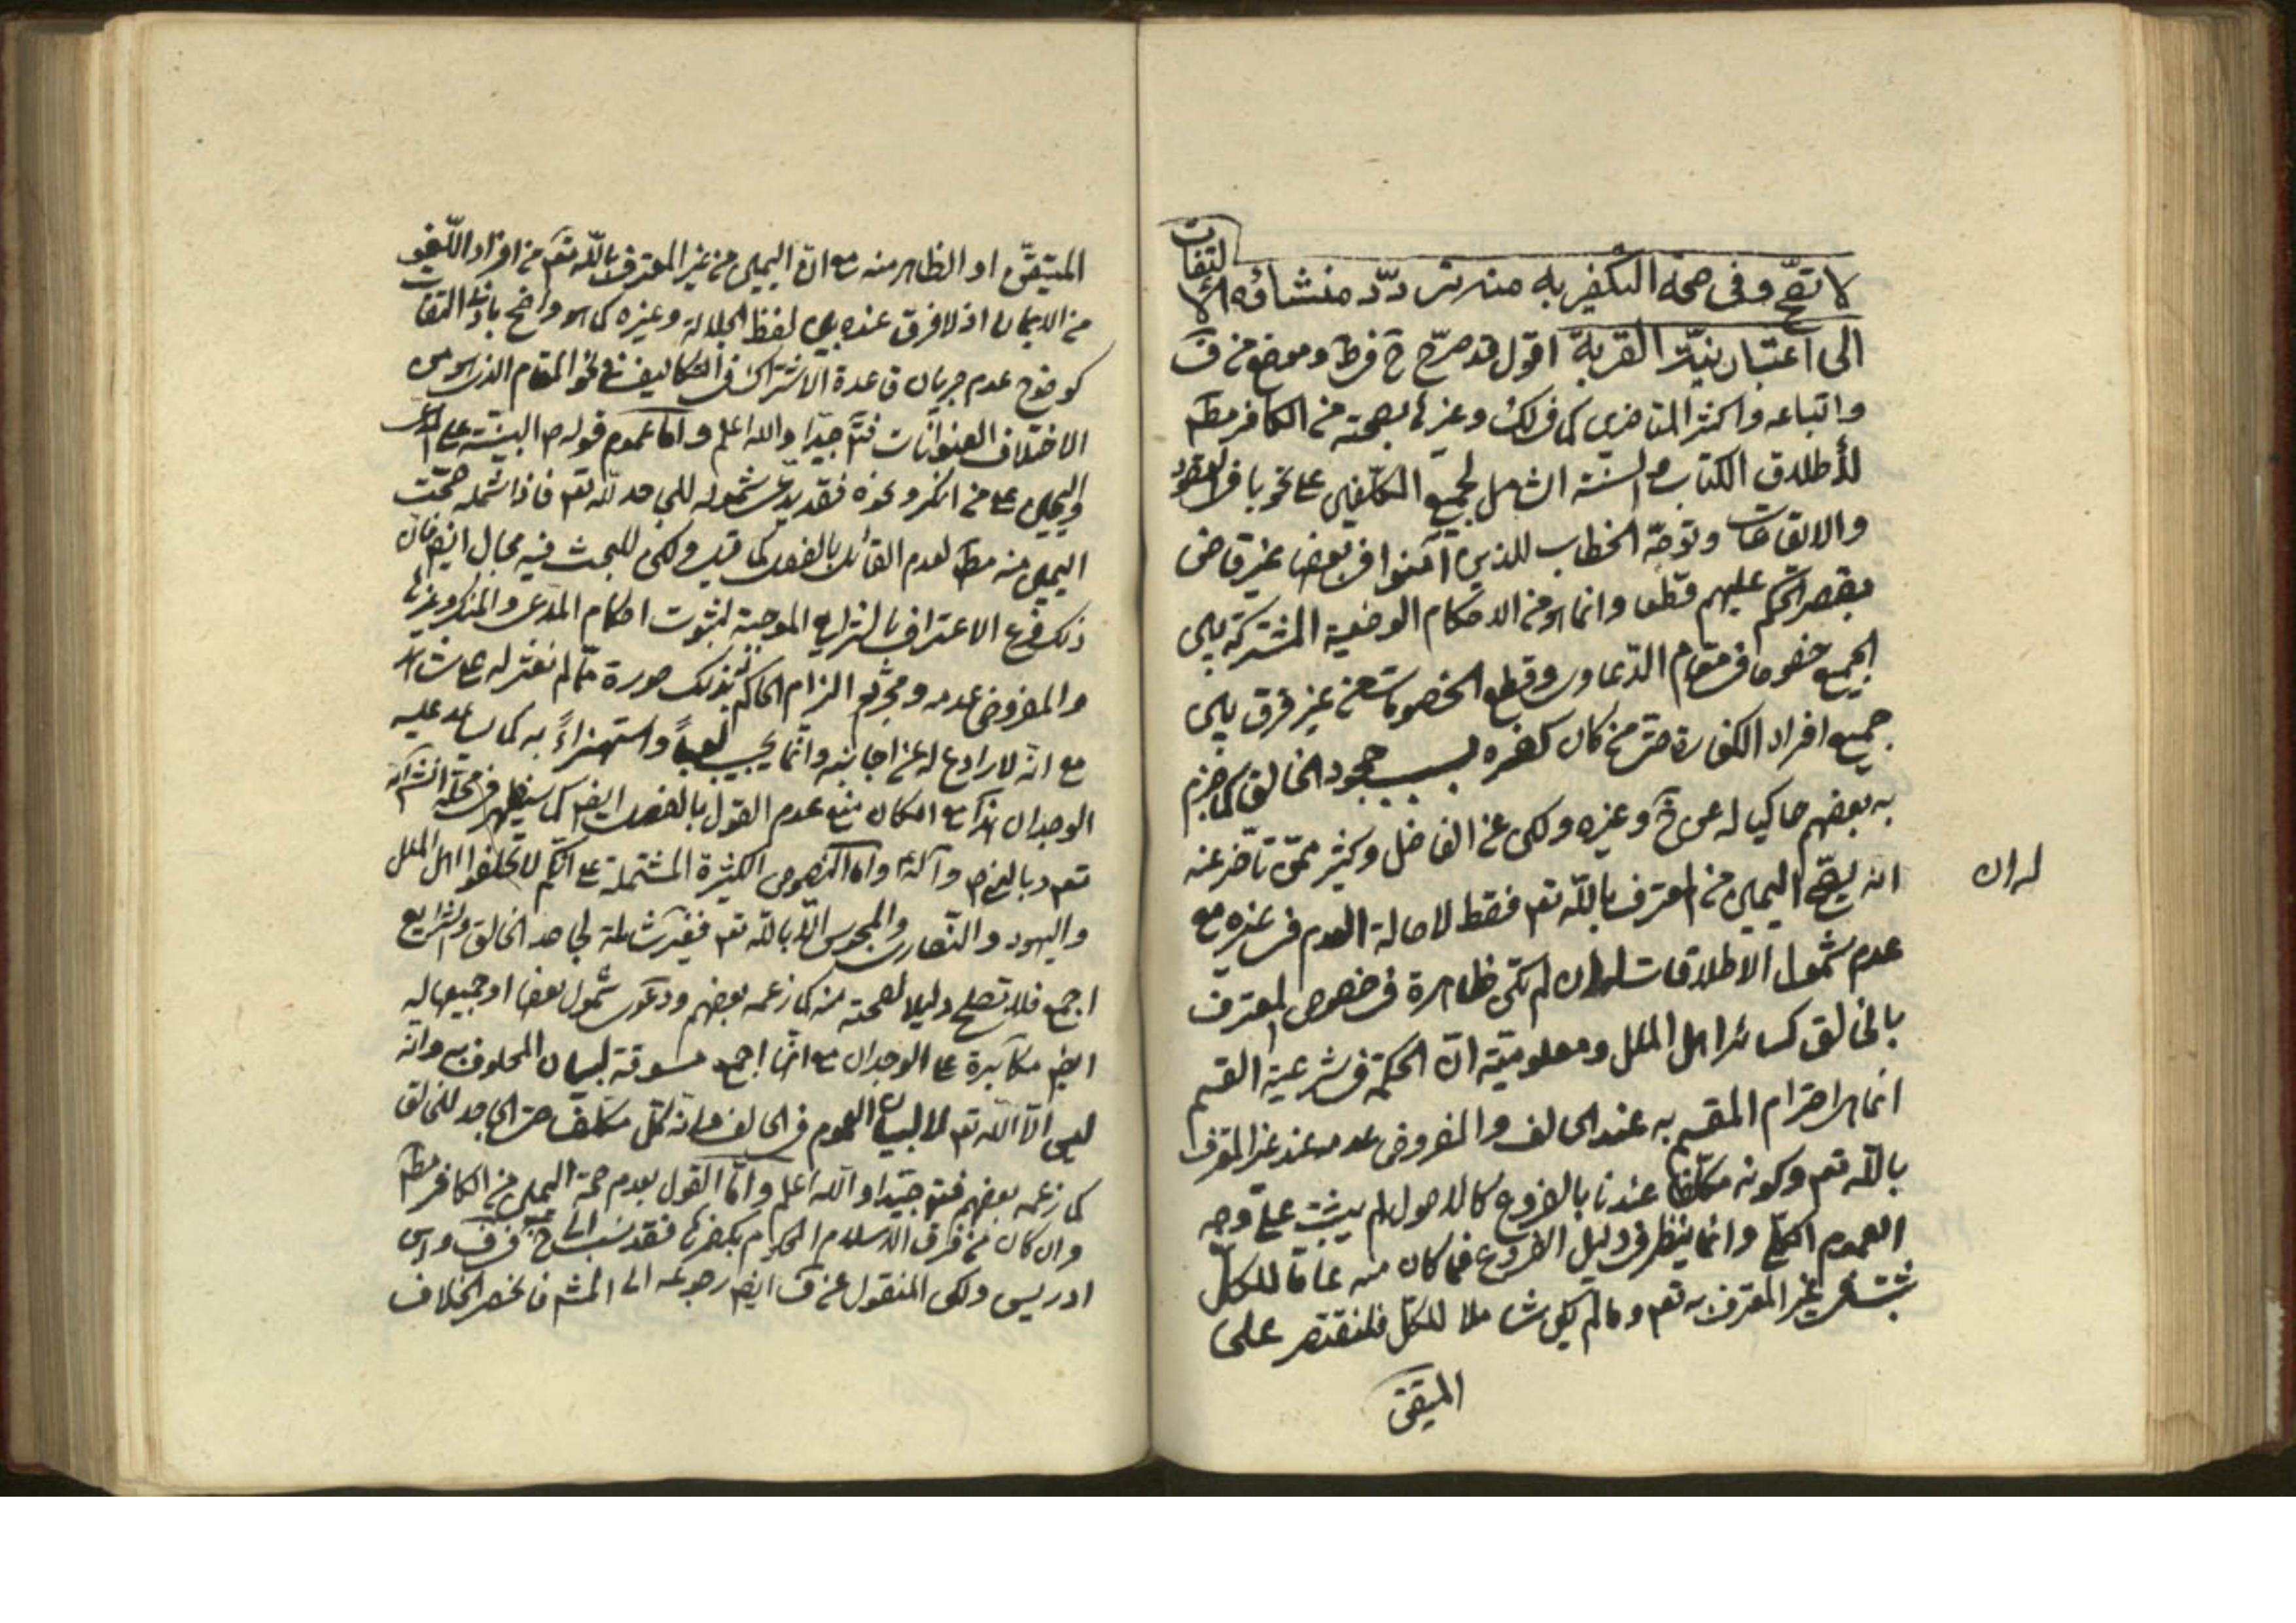 لا تصح وفى صحة التكفير به منه تردّد منشاؤه الالتفات
الى اعتبار نيّة القربة اقول قد صرّح خ فى ط وموضع من ف
واتباعه واكثر المتاخرين كما فى لك وغيرها بصحته من الكافر مط
لأطلاق الكتاب والسنة الشامل لجميع المكلّفين على نحو باقى العقود
والايقاعات وتوجّه الخطاب للذين آمنوا فى بعضها غير قاض
بقصر الحكم عليهم قطعا وانما هو من الاحكام الوضعية المشتركة بين
الجميع خصوصا فى مقام الدّعاوى وقطع الخصومات من غير فرق بين
جميع افراد الكفارة حتى من كان كفره بسبب جحود الخالق كما جزم
به بعضهم حاكيا له عن خ وغيره ولكن عن الفاضل وكثير ممّن تأخر عنه
انه يصحّ اليمين من المعترف بالله تعم فقط لاصالة العدم فى غيره مع
عدم شمول الاطلاقات له ان لم تكن ظاهرة فى خصوص المعترف
له ان
بالخالق كسائر اهل الملل ومعلوميّة انّ الحكمة فى شرعية القسم
انما هى احترام المقسم به عند الحالف والمفروض عدمه عند غير المعترف
بالله تعم وكونه مكلّفا عندنا بالفروع كالاصول لم يثبت على وجه
العموم الكلّى وانما ينظر فى دليل الفروع فما كان منه عامّا للكلّ
يثبت فى غير المعترف به تعم وما لم يكن شاملا للكلّ فلنقتصر على
المتيقّن
المتيقّن او الظاهر منه مع انّ اليمين من غير المعترف بالله تعم من افراد اللّغو
من الايمان اذ لا فرق عنده بين لفظ الجلالة وغيره كما هو واضح بادنى التفات
كوضوح عدم جريان قاعدة الاشتراك فى التكاليف فى نحو المقام الذى هو من
الاختلاف العنوانات فتم جيّدا والله اعلم واما عموم قوله ص البيّنة على المدعى
واليمين على من انكر ونحوه فقد يدّعى شموله للجاحد لله تعم فاذا شمله صحّت
اليمين منه مط لعدم القائل بالفصل كما قيل ولكن للبحث فيه مجال ايضم فان
ذلك فرع الاعتراف بالشرايع الموجبة لثبوت احكام المدّعى والمنكر وغيرها
والمفروض عدمه ومجرّد الزام الحاكم بذلك صورة ممّا لم نعثر له على شاهد
مع انّه لا رادع له عن اجابته وانّما يجيب لعباً واستهزاءً به كما يساعد عليه
الوجدان هذا مع امكان منع عدم القول بالفصل ايضم كما سيظهر فى محلّه انشاء الله
تعم وبالنبى ص وآله واما النصوص الكثيرة المشتملة على انّكم لا تحلفوا اهل الملل
واليهود والنّصارى والمجوس الّا بالله تعم فغير شاملة لجاحد الخالق والشرايع
اجمع فلا تصلح دليلا لصحته منه كما زعمه بعضهم ودعوى شمول بعضها او جميعها له
ايضم مكابرة على الوجدان مع انّها اجمع مسوقة لبيان المحلوف به وانّه
ليس الّا الله تعم لا لبيان العموم فى الحالف وانه كلّ مكلّف حتى الجاحد للخالق
كما زعمه بعضهم فتم جيّدا والله اعلم وامّا القول بعدم صحّة اليمين من الكافر مط
وان كان من فرق الاسلام المحكوم بكفرها فقد نسب الى خ فى ف وابن
ادريس ولكن المنقول عن ف ايضم رجوعه الى المش فانحصر الخلاف